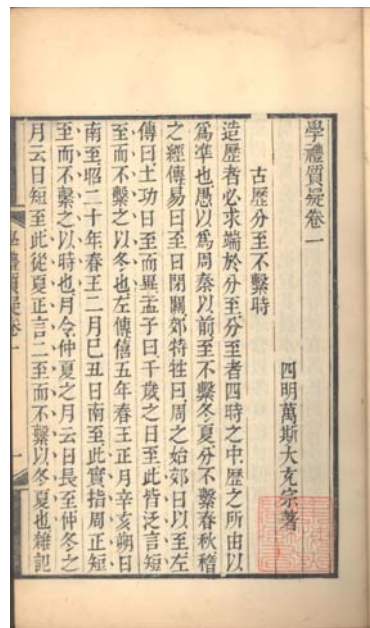 學禮質疑卷一
四明萬斯大充宗著
古歷分至不繫時
造歷者必求端於分至分至者四時之中歷之所由以
爲準也愚以爲周秦以前至不繫冬夏分不繫春秋稽
之經傳易曰至日閉關郊特牲曰周之始郊日以至左
傳曰土功日至而畢孟子曰千歲之日至此皆泛言短
至而不繫之以冬也左傳僖五年春王正月辛亥朔日
南至昭二十年春王二月己丑日南至此實指周正短
至而不繫之以時也月令仲夏之月云日長至仲冬之
月云日短至此從夏正言二至而不繫以冬夏也雜記
學禮質疑卷一
一